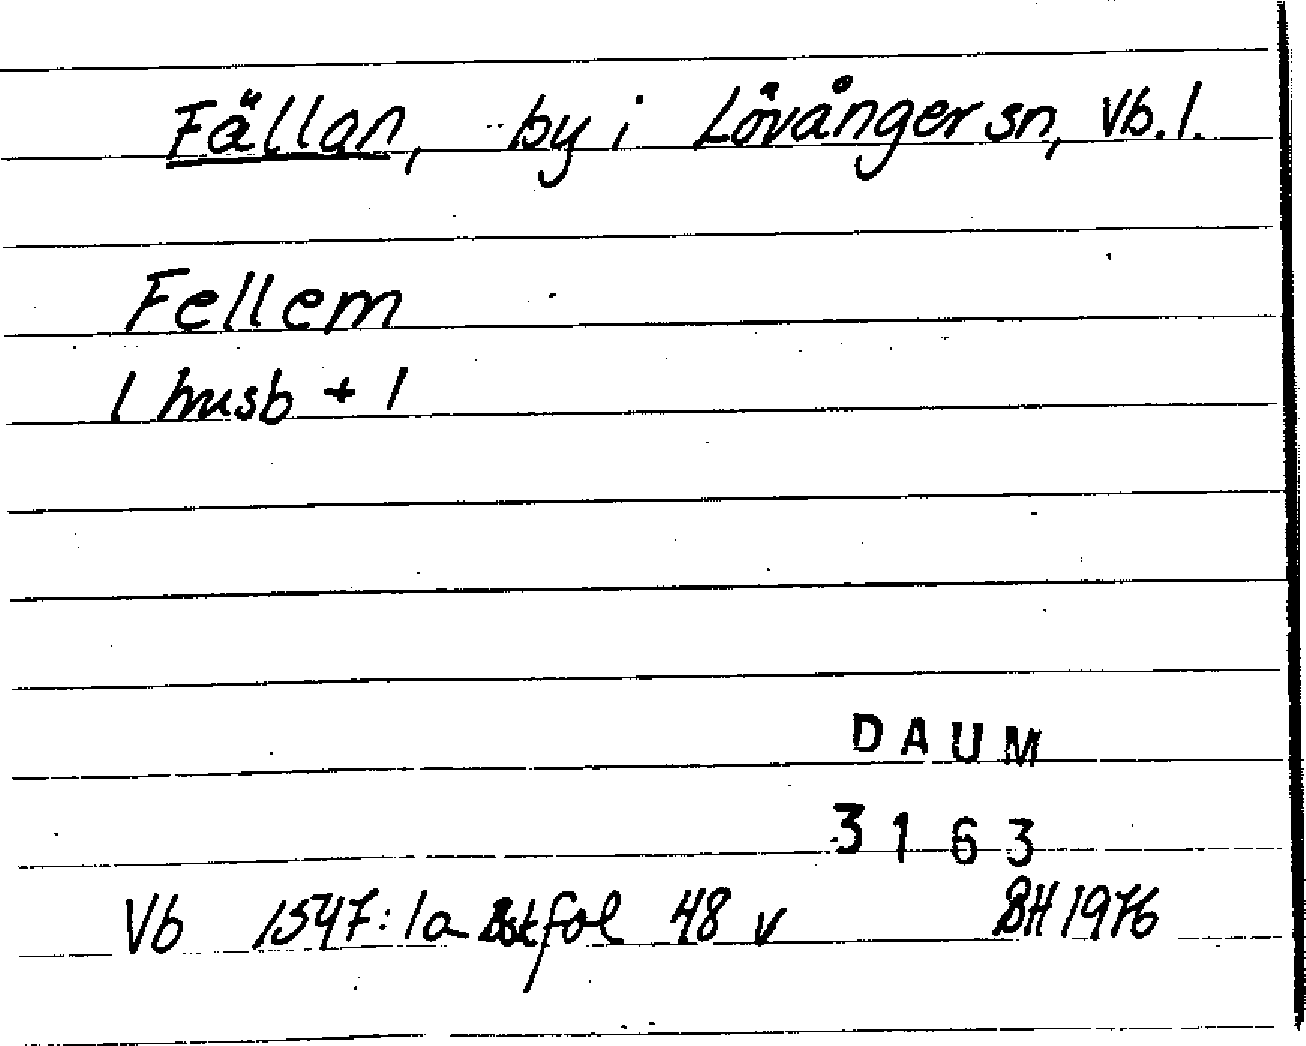 Fällan, by i Lövånger sn, Vb. l.
Fellem
1 husb + 1
DAUM
3163
Vb 1547: 1a fol 48 v BH 1976